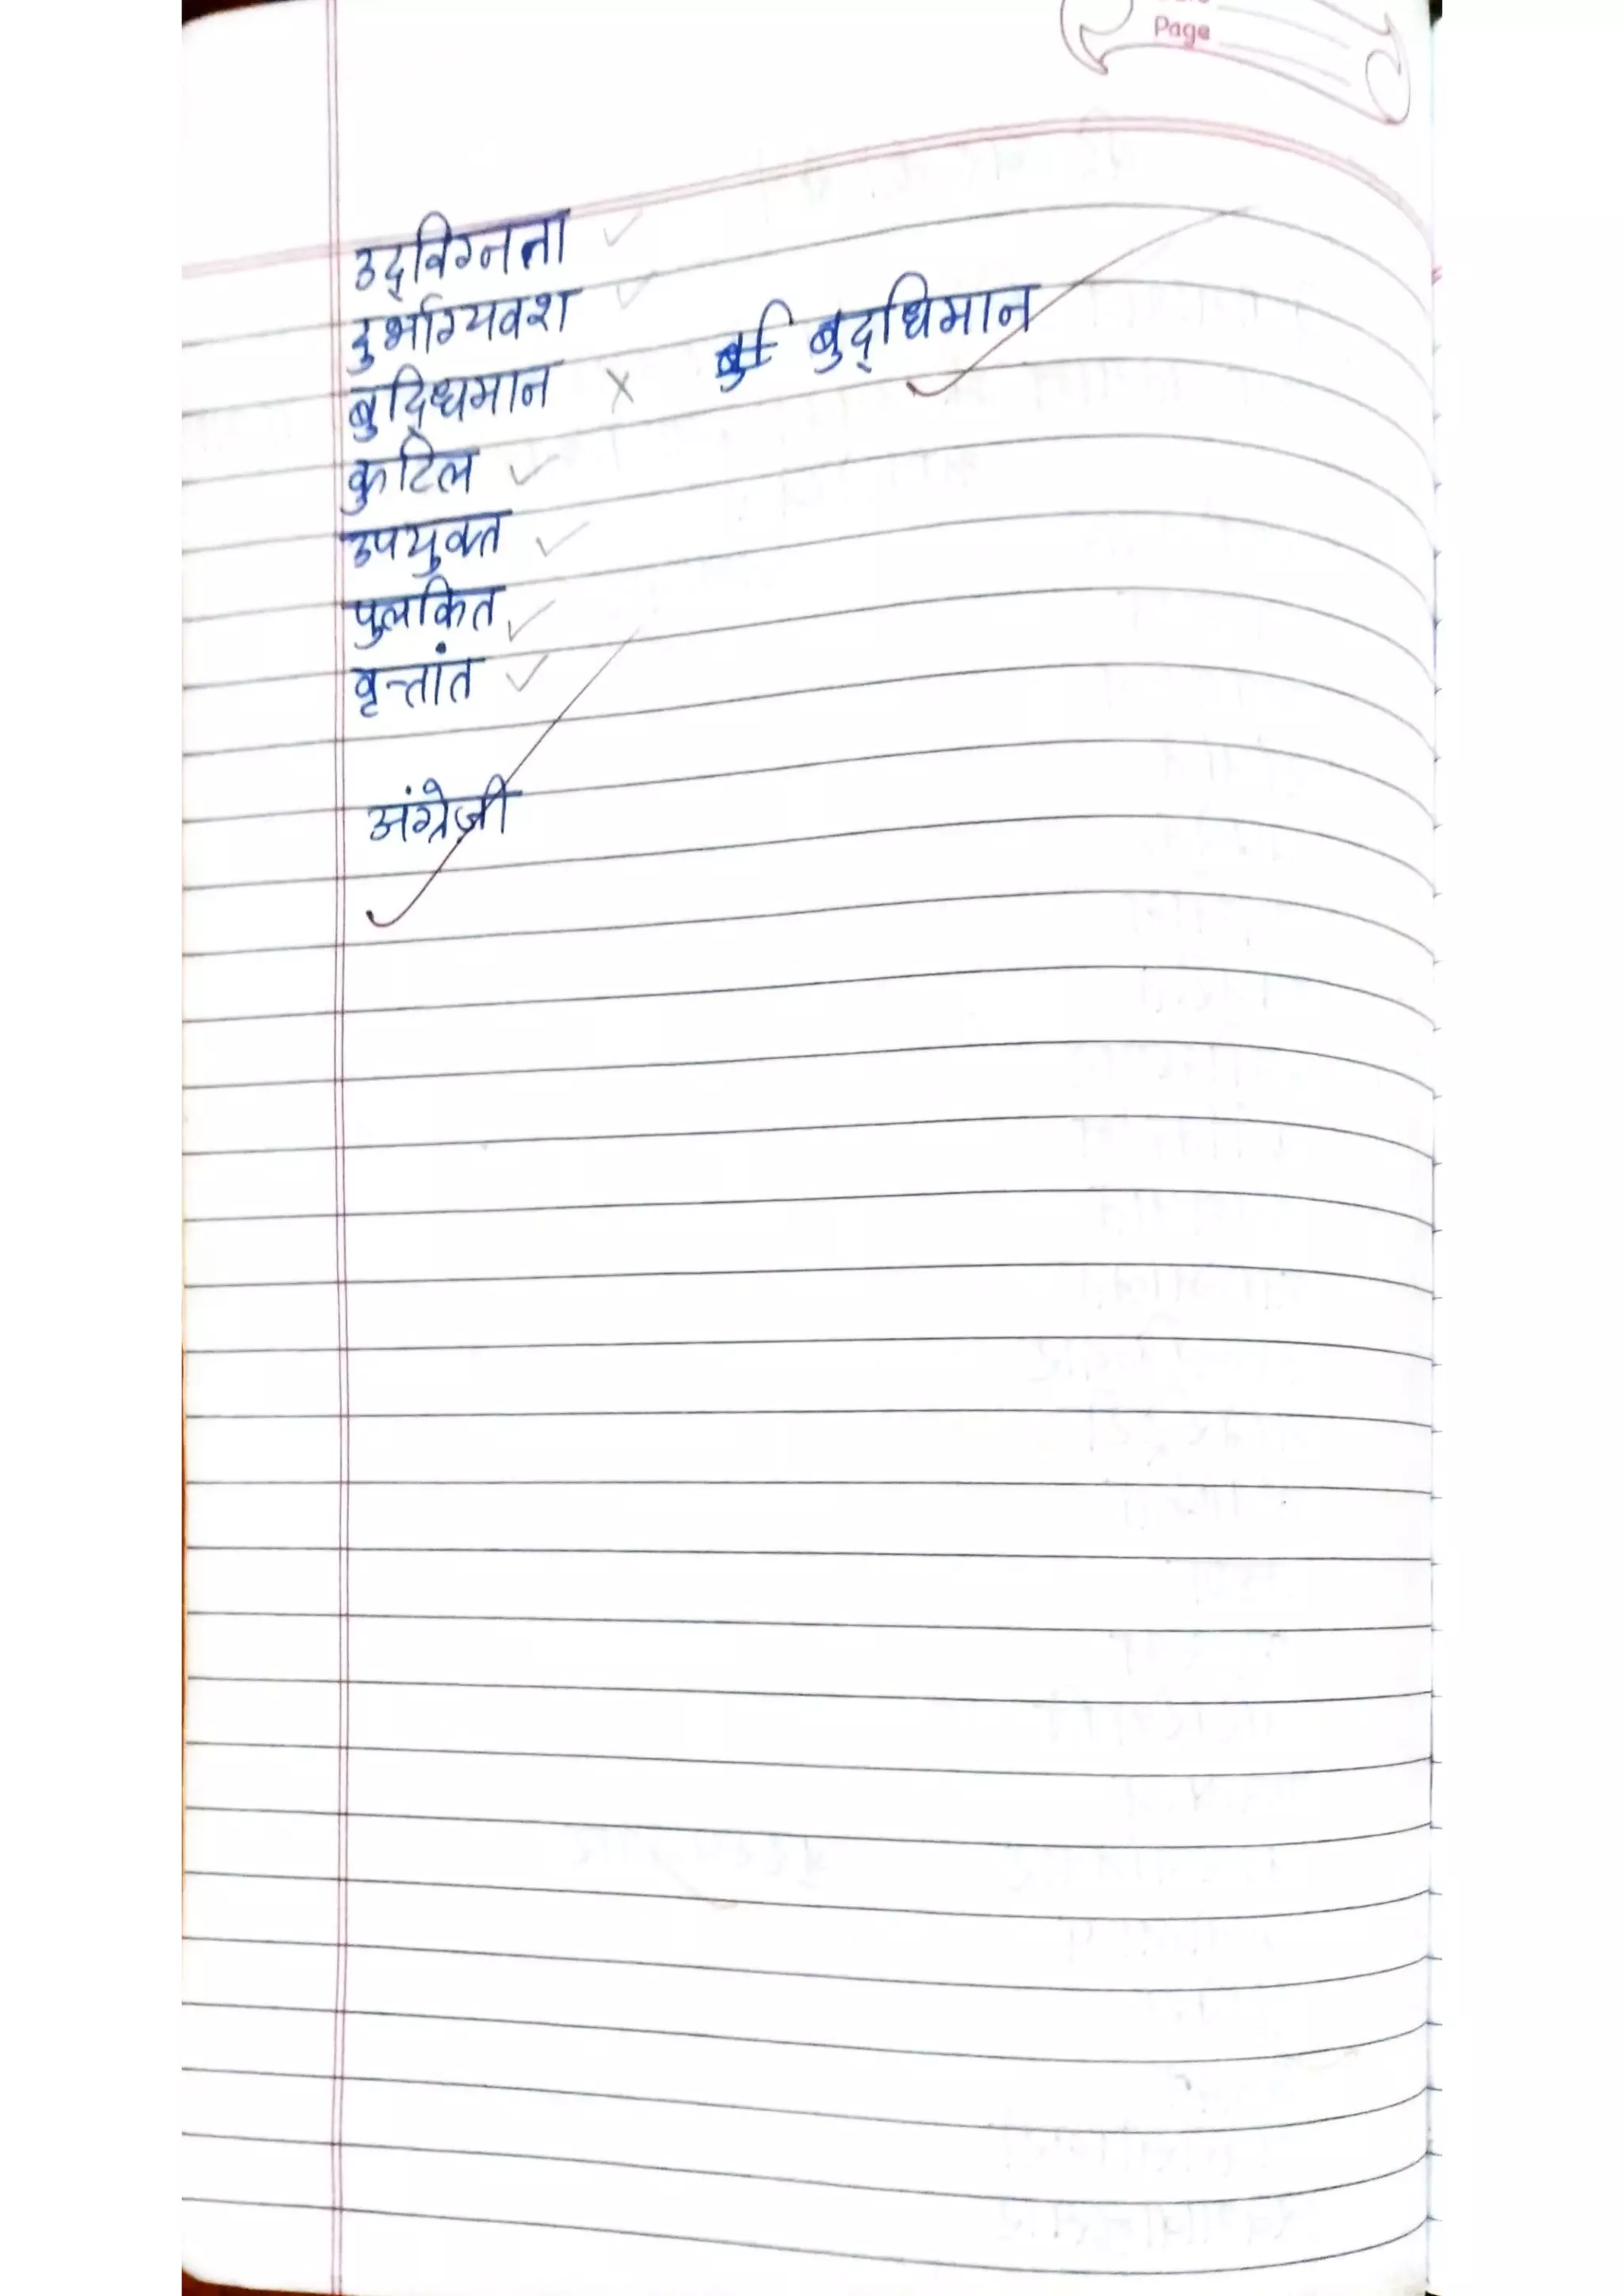 Page
उद्‌विग्नता
दुर्भाग्यवश
बुद्धिमान × बुद्‌धिमान
कुटिल
उपयुक्त
पुलकित
वृत्तांत
अंग्रेज़ी